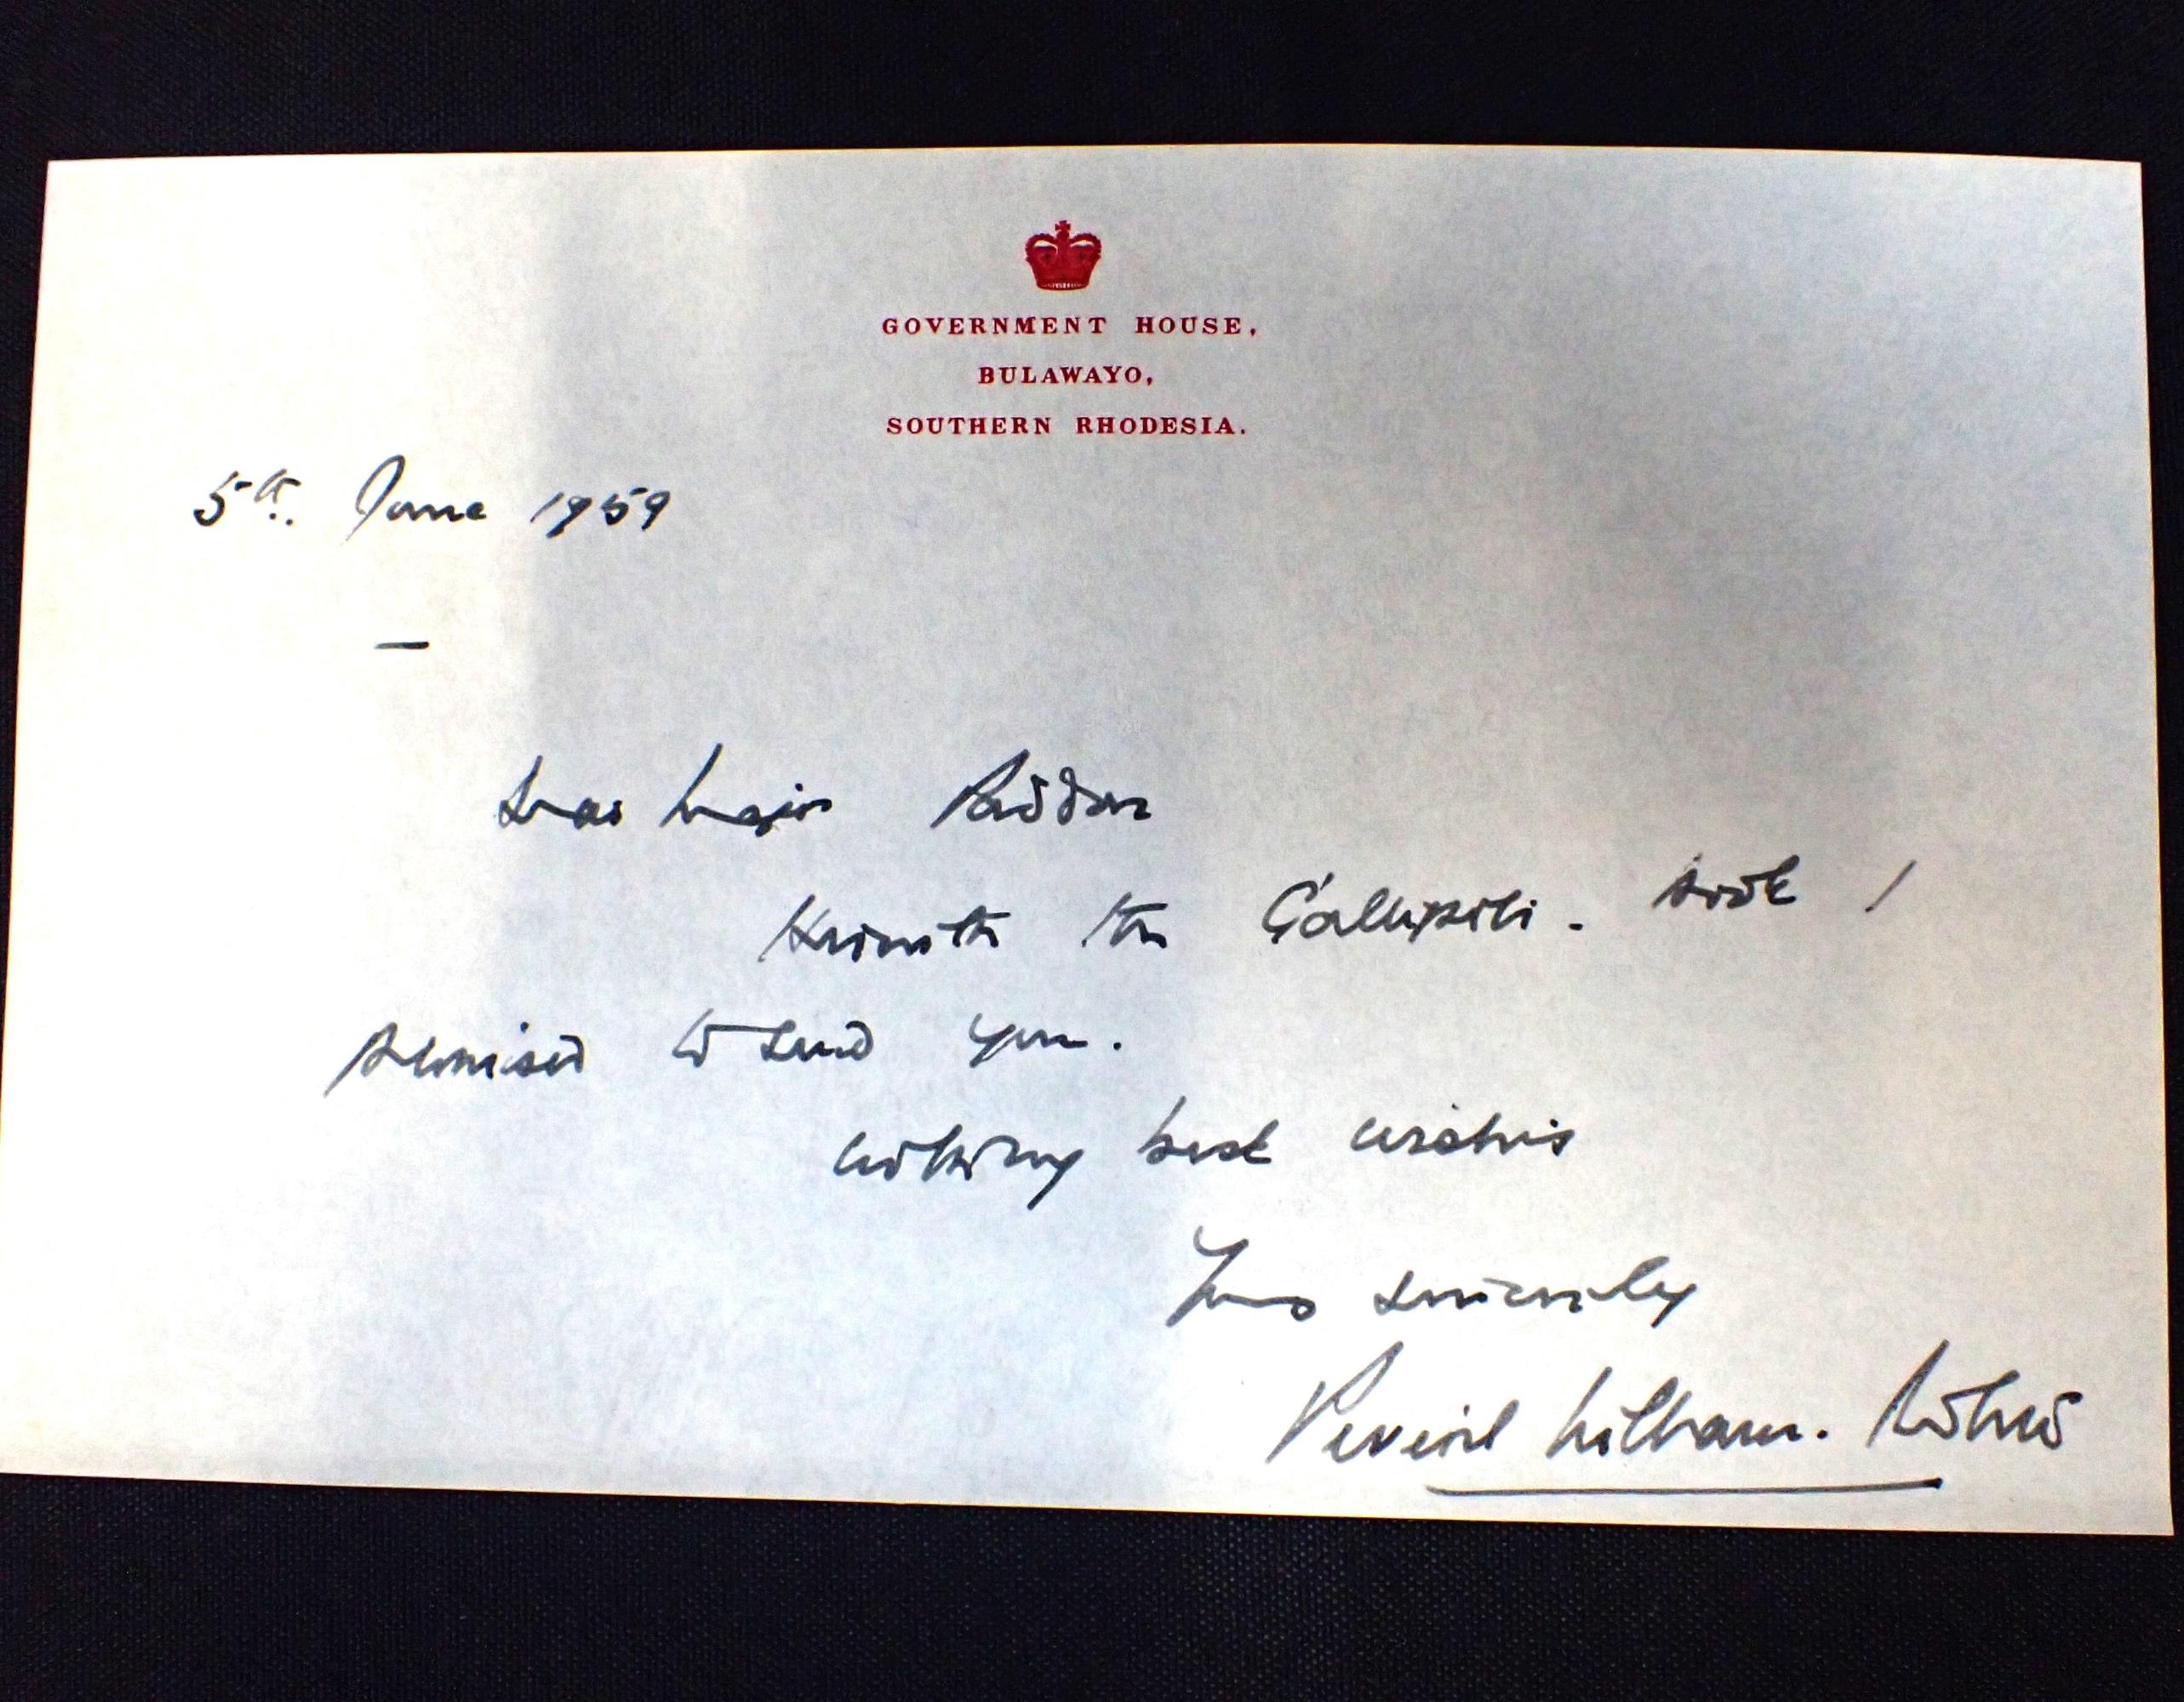 GOVERNMENT HOUSE,
BULAWAYO,
SOUTHERN RHODESIA.
5th. June 1959
Dear Major
Herewith the Gallipoli. book I
promised to send you.
Wishing best wishes
Yours sincerely
Peveril William-Powlett